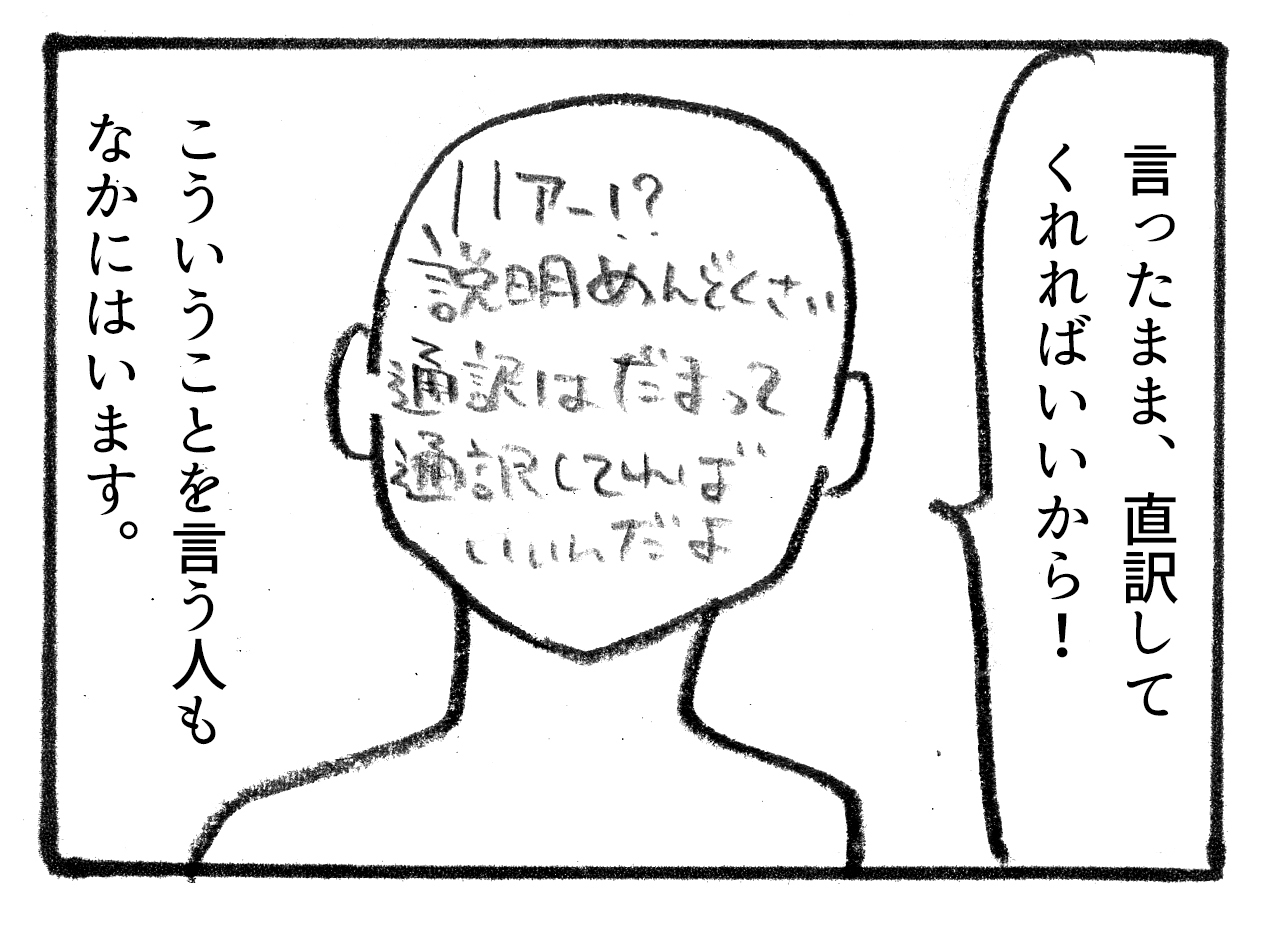 言ったまま、直訳して
くれればいいから！
リアー!?
説明めんどくさい
通訳はだまって
通訳してれば
いいんだよ
こういうことを言う人も
なかにはいます。